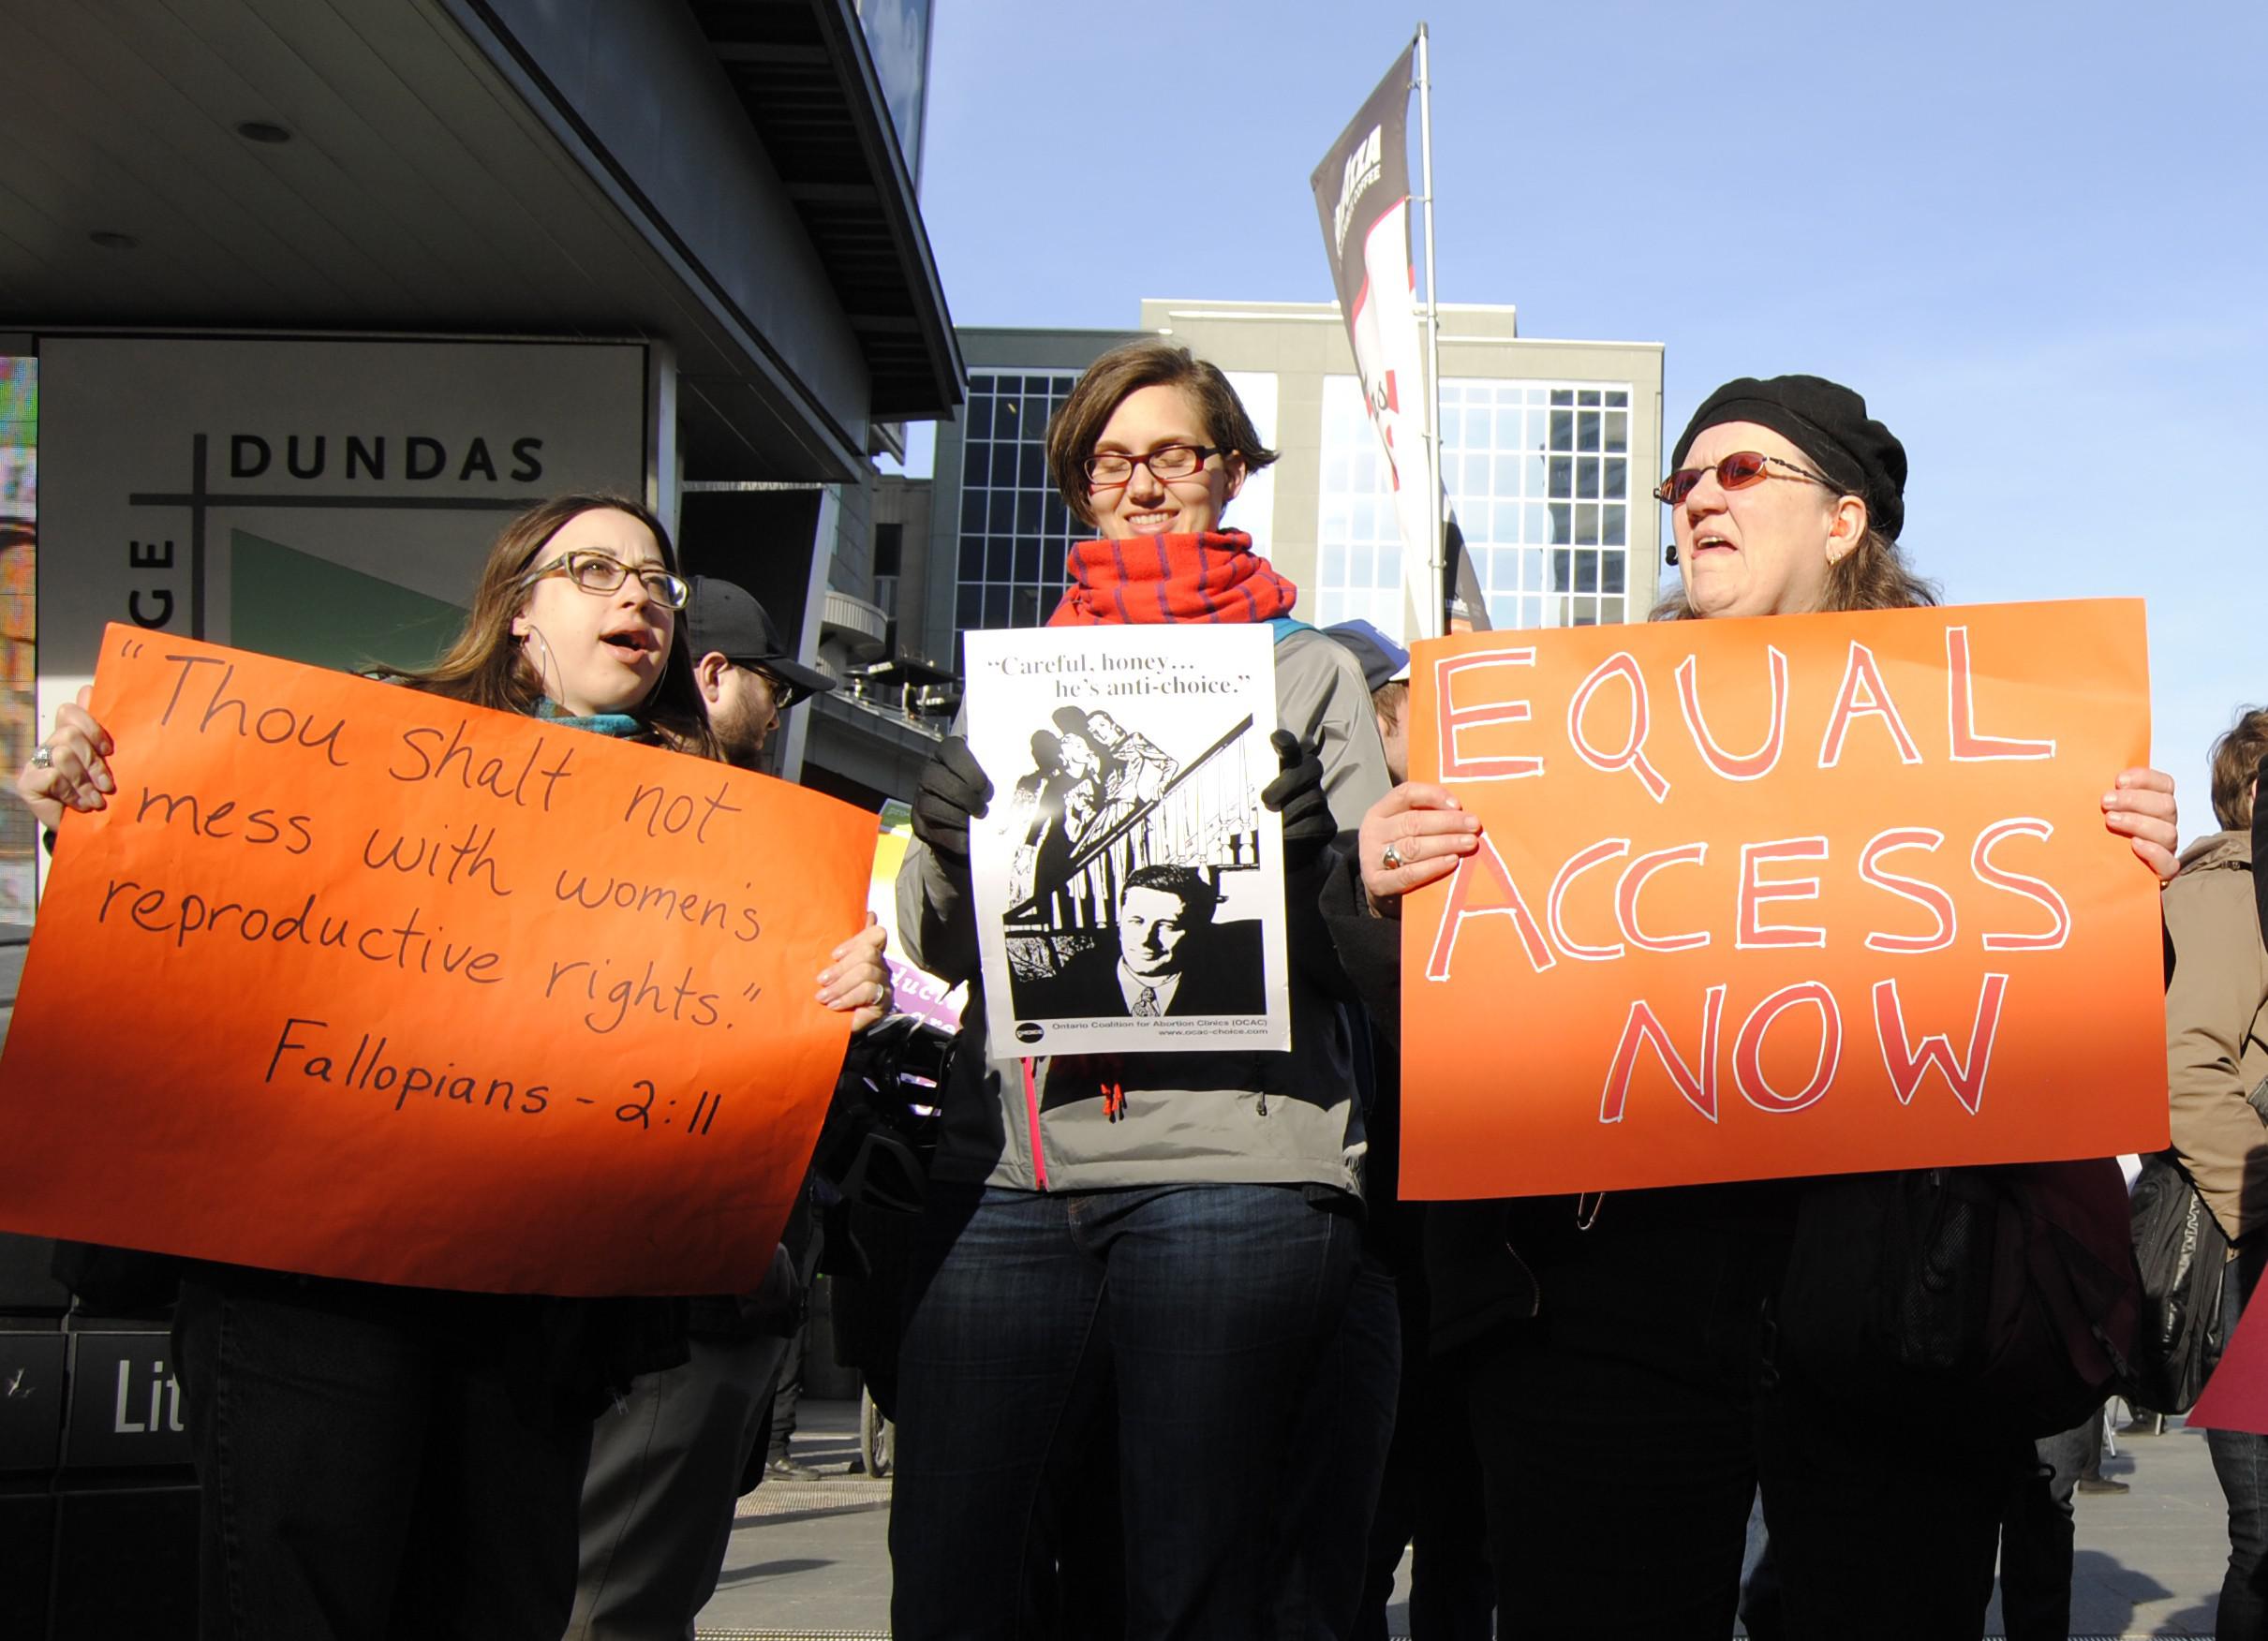 DUNDAS
GE
"Thou shalt not
mess with women's
reproductive rights."
Fallopians - 2:11
"Careful, honey...
he's anti-choice."
CHOICE
Ontario Coalition for Abortion Clinics (OCAC)
www.ocac-choice.com
EQUAL
ACCESS
NOW
Lit